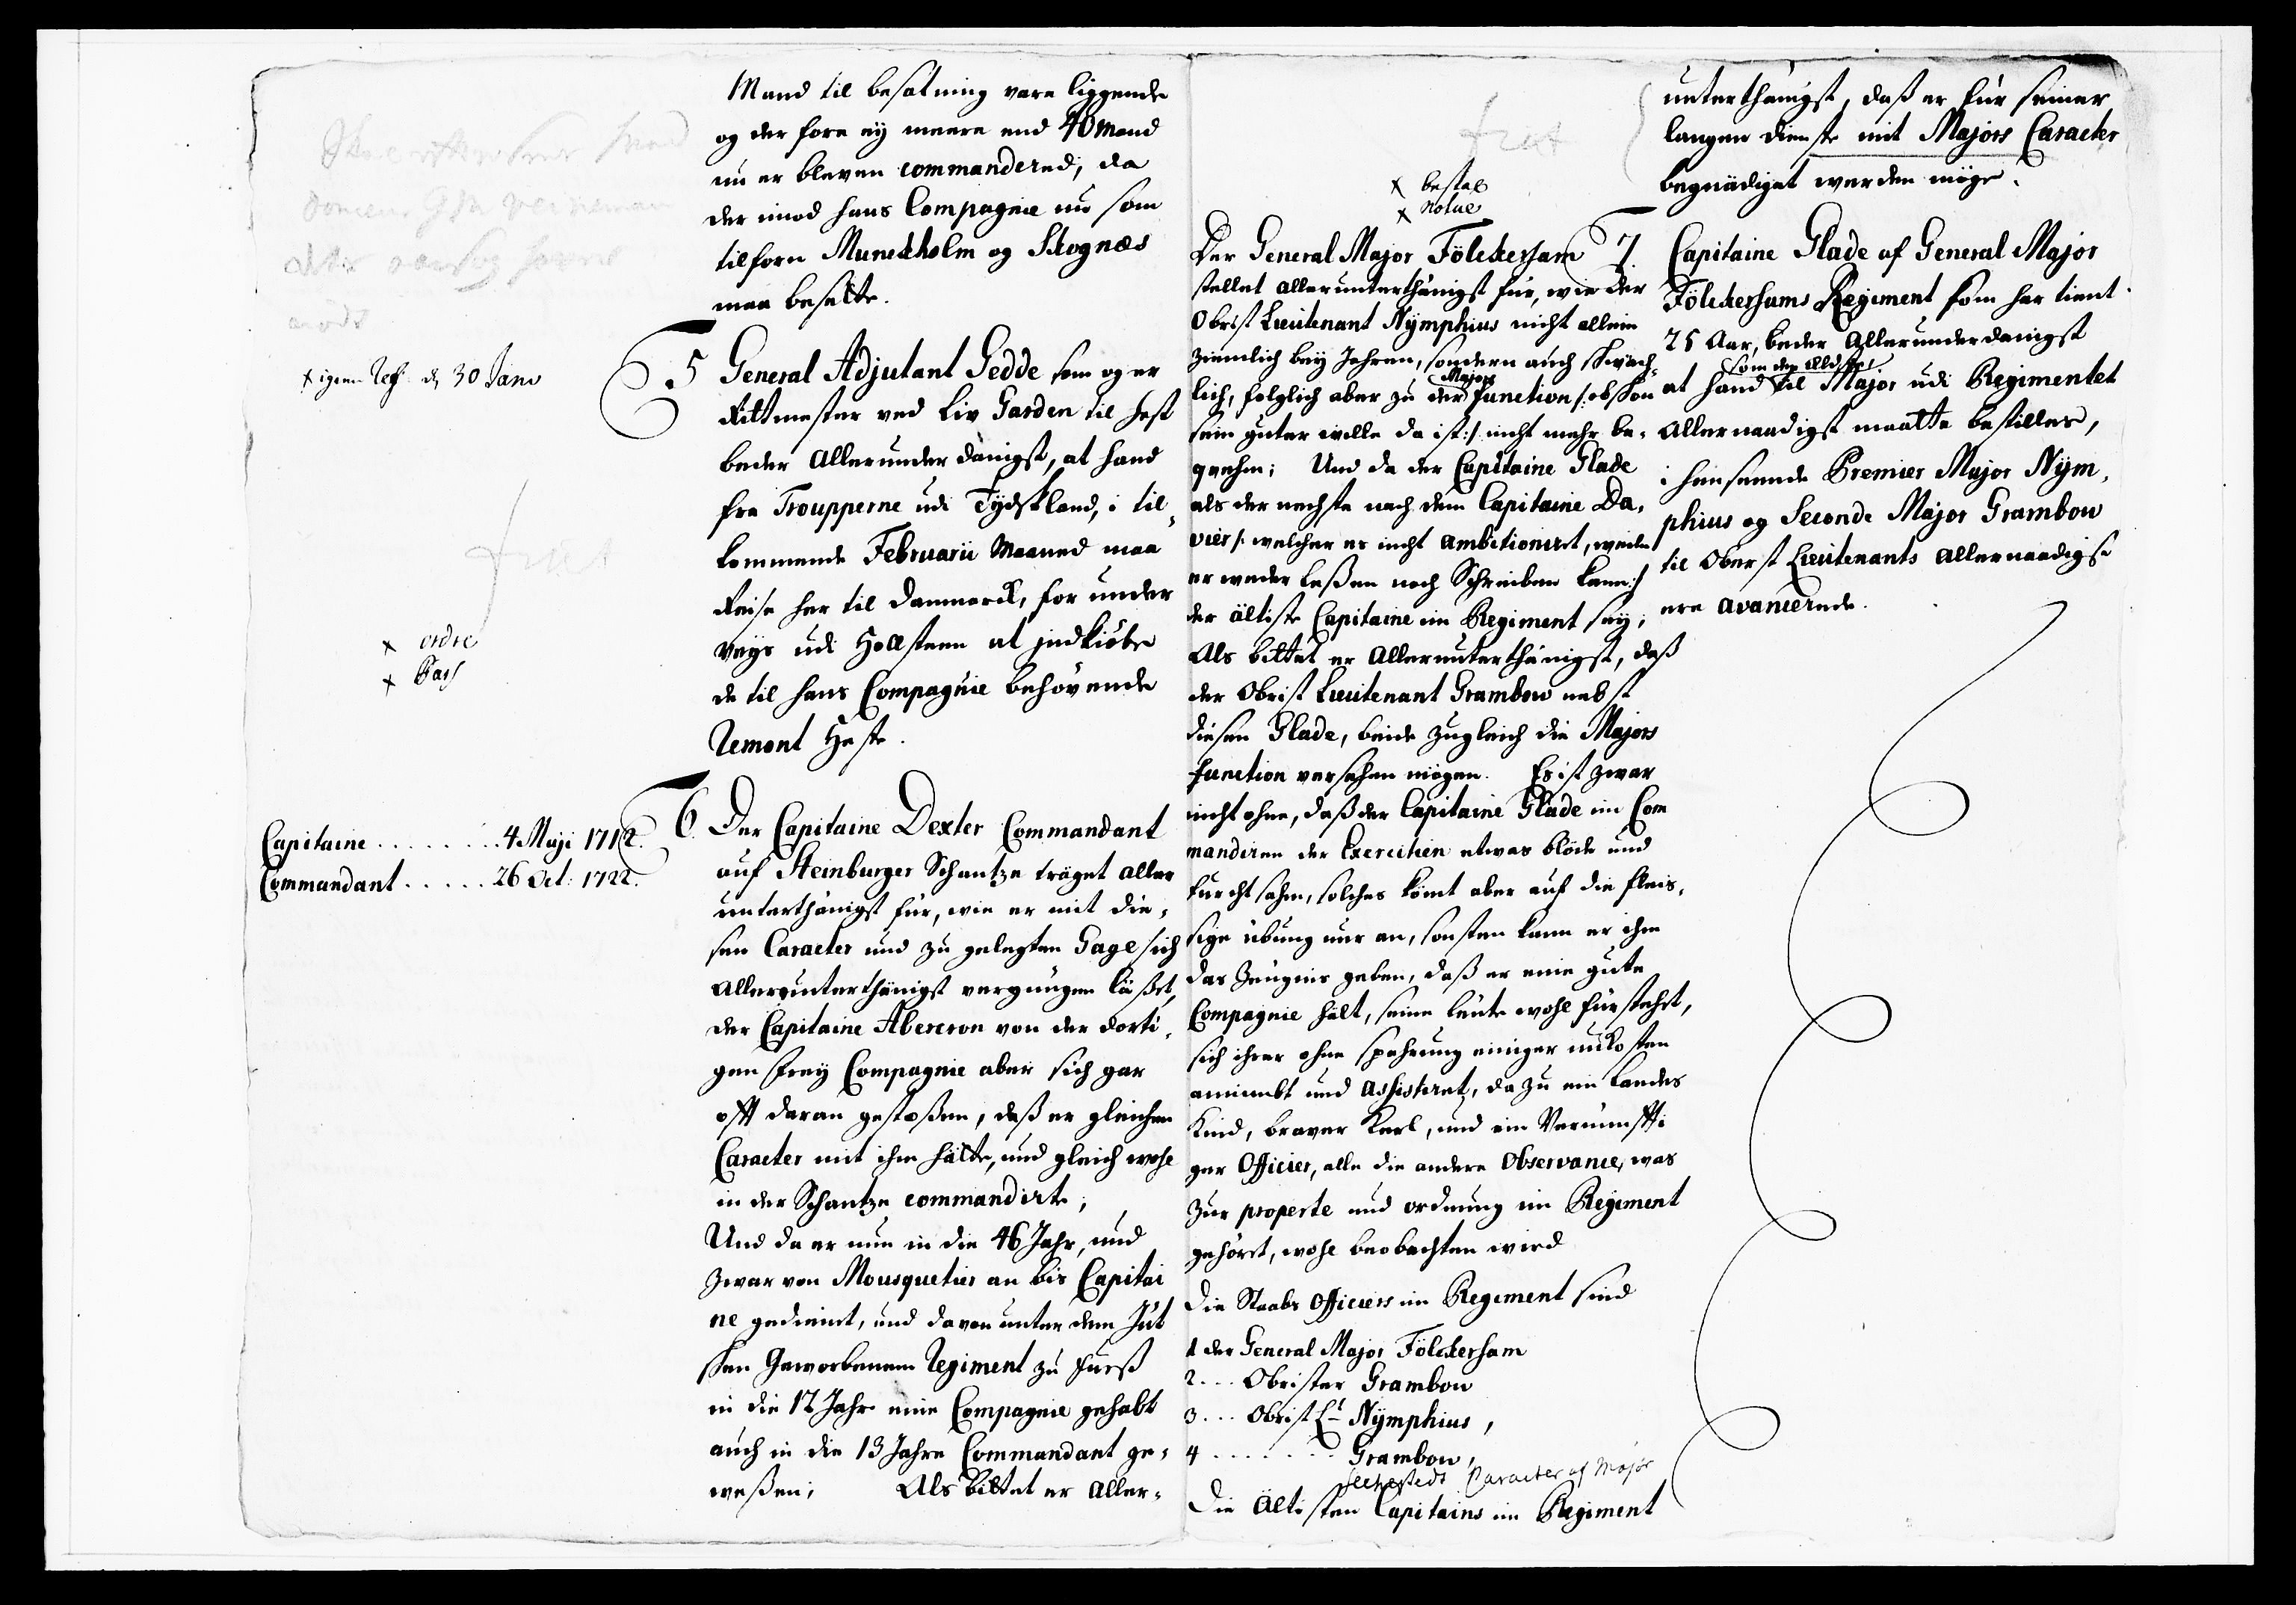 Mand til besætning være liggende
og der fore ey meere end 40 Mand
nu er bleven commandered, da
der imod hans Compagnie nu som
tilforn Munckholm og Skognæs
maa besætte.
× igien Ref: d 30 Janv
5 General Adjutant Gedde som og er
Ritmester ved Liv Garden til Hest
beder Allerunderdanigst, at hand
fra Troupperne udi Tydskland, i til-
kommende Februarii Maaned maa
Reise her til Danmarck, for under
veys udi Hollsteen at indkiøbe
de til hans Compagnie behövende
Remont Heste.
× ordre
× Pass
Capitaine ........ 4 Maji 1712.
Commandant ..... 26 Oct: 1722.
6. Der Capitaine Dexter Commandant
auf Steinburger Schantze träget aller
unterthänigst für, wie er mit die-
sen Caracter und zu gelegten Gage sich
allerunterthänigst vergnügen läßet,
der Capitaine Abercron von der dorti-
gen Frey Compagnie aber sich gar
offt daran gestoßen, daß er gleichen
Caracter mit ihm hätte, und gleich wohl
in der Schantze commandirte;
Und da er nun in die 46 Jahr, und
zwar von Mousquetier an bis Capitai
ne gedienet, und davon unter dem Jüt
schen Geworbenem Regiment zu Fuß
in die 12 Jahr eine Compagnie gehabt
auch in die 13 Jahre Commandant ge-
weßen; Als bittet er Aller-
unterthänigst, daß er für seiner
langen dienste mit Majors Caracter
begnädiget werden möge.
× bestal
× Notue
Der General Major Fölckersam
stellet allerunterthänigst für, wie der
Obrist Lieutenant Nÿmphius nicht allein
ziemlich bey Jahren, sondern auch schwäch-
lich, folglich aber zu der Majors function /: obschon
sein guter wille da ist :/ nicht mehr be-
quehm; Und da der Capitaine Glade
als der nechste nach dem Capitaine Da-
vier /: welcher es nicht ambitioniret, weilen
er weder leßen noch Schreiben kann :/
der ältiste Capitaine im Regiment sey;
Als bittet er Allerunterthänigst, daß
der Obrist Lieutenant Grambow nebst
diesen Glade, beide zugleich die Majors
function versehen mögen. Es ist zwar
nicht ohne, daß der Capitaine Glade im Com
mandiren der Exercitien etwas blöde und
furchtsahm, solches kömt aber auf die fleis-
sige übung nur an, sonsten kann er ihm
das Zeugnis geben, daß er eine gute
Compagnie hält, seine leute wohl fürstehet,
sich ihrer ohne spahrung einiger unkosten
annimbt und assisteret, da zu ein Landes
Kind, braver Kerl, und ein Vernünffti
ger Officier, alle die andere Observance, was
zur properte und ordnung im Regiment
gehöret, wohl beobachten wird
Die Staabs Officiers im Regiment sind
1 der General Major Fölckersam
2 ... Obrister Grambow
3 ... Obrist Lt Nÿmphius,
4 ....... Grambow,
Caracter af Major
Die Ältisten Capitains im Regiment
7. Capitaine Glade af General Major
Fölckersams Regiment som har tient
25 Aar, beder Allerunderdanigst
som den ældste
at hand til Major udi Regimentet
Allernaadigst maatte bestilles,
i henseende Premier Major Nÿm-
phius og Seconde Major Grambow
til Oberst Lieutenants Allernaadigst
ere avancerede.